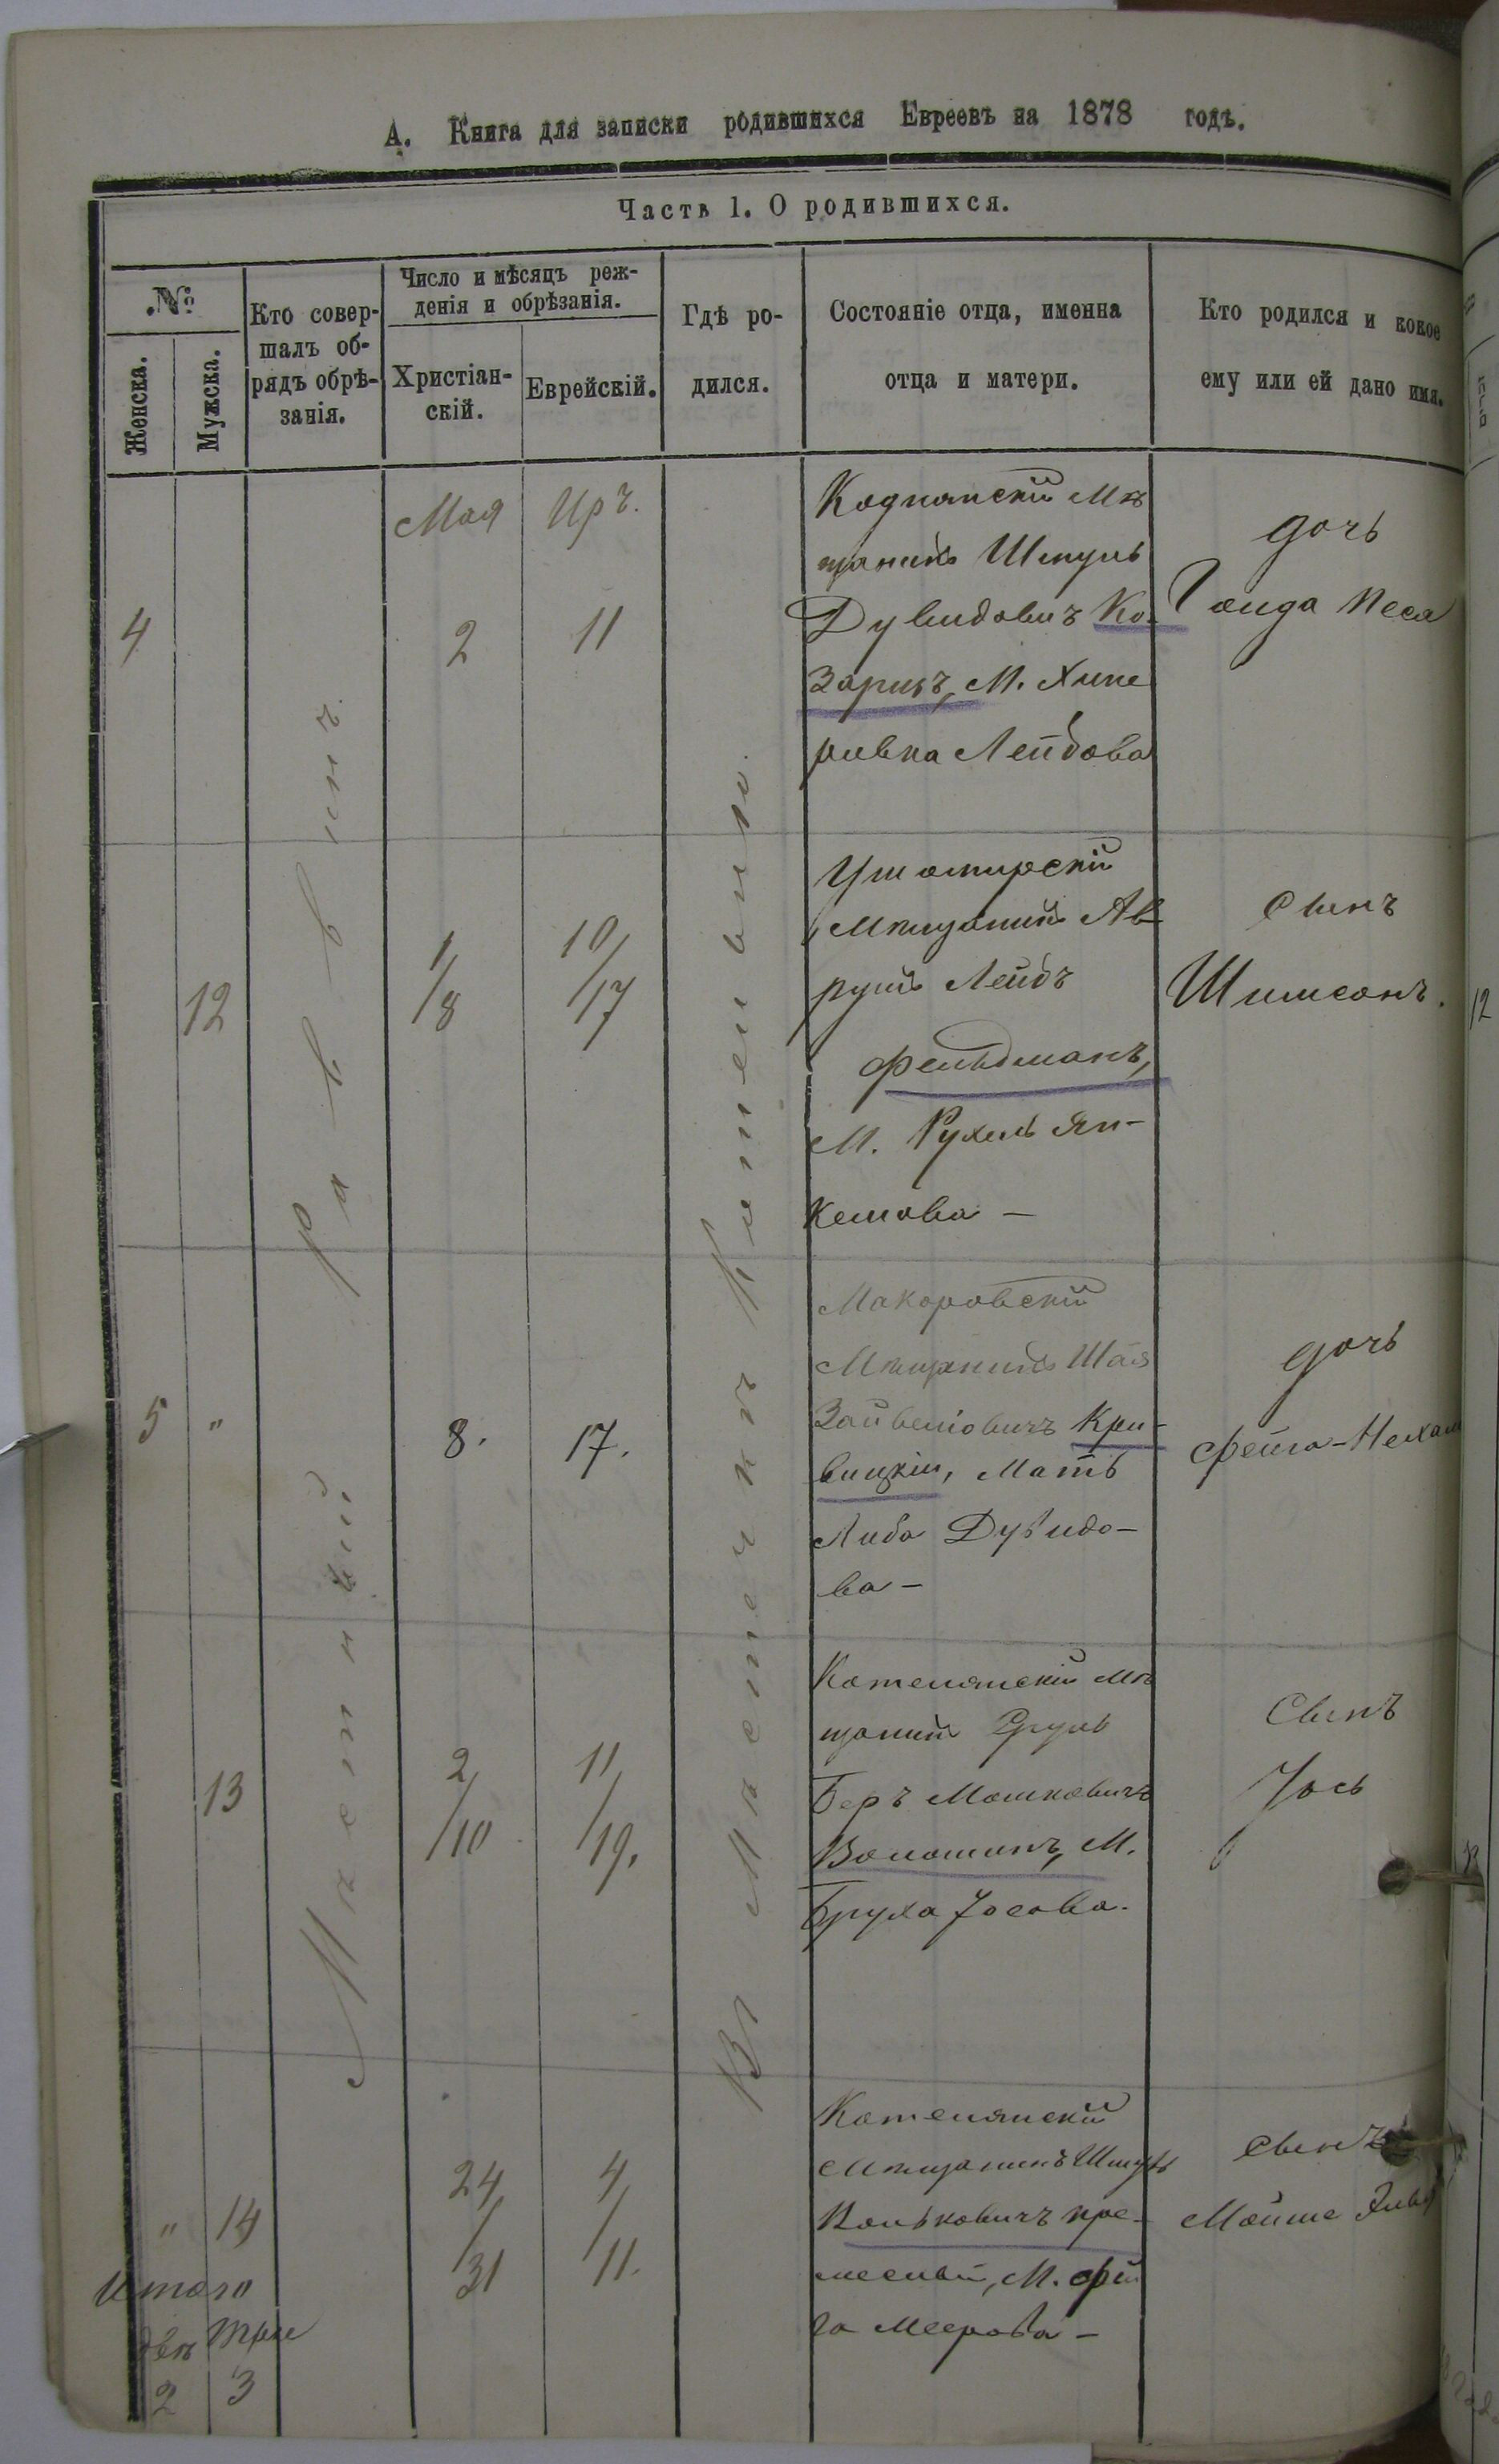 А. Книга для записки родившихся Евреевъ на 1878 годъ.
Часть 1. О родившихся.
№
Женска.
Мужска.
Кто совер-
шалъ об-
рядъ обрѣ-
занія.
Число и мѣсяцъ реж-
денія и обрѣзанія.
Христіан-
скій.
Еврейскій.
Гдѣ ро-
дился.
Состояніе отца, именна
отца и матери.
Кто родился и кокое
ему или ей дано имя.
Мѣстный Раввинъ.
Въ Мѣстечкѣ
4
Мая
2
Иръ.
11
Коднянскій Мѣ
щанинъ Шмуль
Дувидовичъ Ко-
Заривъ, М. Хине
ривка Лейбова
дочь
Песя
12
1/8
10/17
Ушомирскій
Мѣщанинъ Ав-
румъ Лейбъ
Фельдманъ,
М. Рухель Ян-
келова —
Сынъ
Шимсонъ.
5 "
8.
17.
Макаровскій
Мѣщанинъ Шая
Зайвеловичъ Кри-
вицкій, Мать
Либа Дувидо-
ва —
дочь
Фейга-Нехам
13
2/10
11/19.
Котелянскій Мѣ
щанинъ Сруль
Беръ Мошковичъ
Волошинъ, М.
Бруха Іосова.
Сынъ
Іось
" 14
24/31
4/11.
Котелянскій
Мѣщанинъ Шмуль
Вольковичъ Кре-
М. Фей
га Меерова —
Сынъ
Мойше
Итого
двѣ три
2 3
12